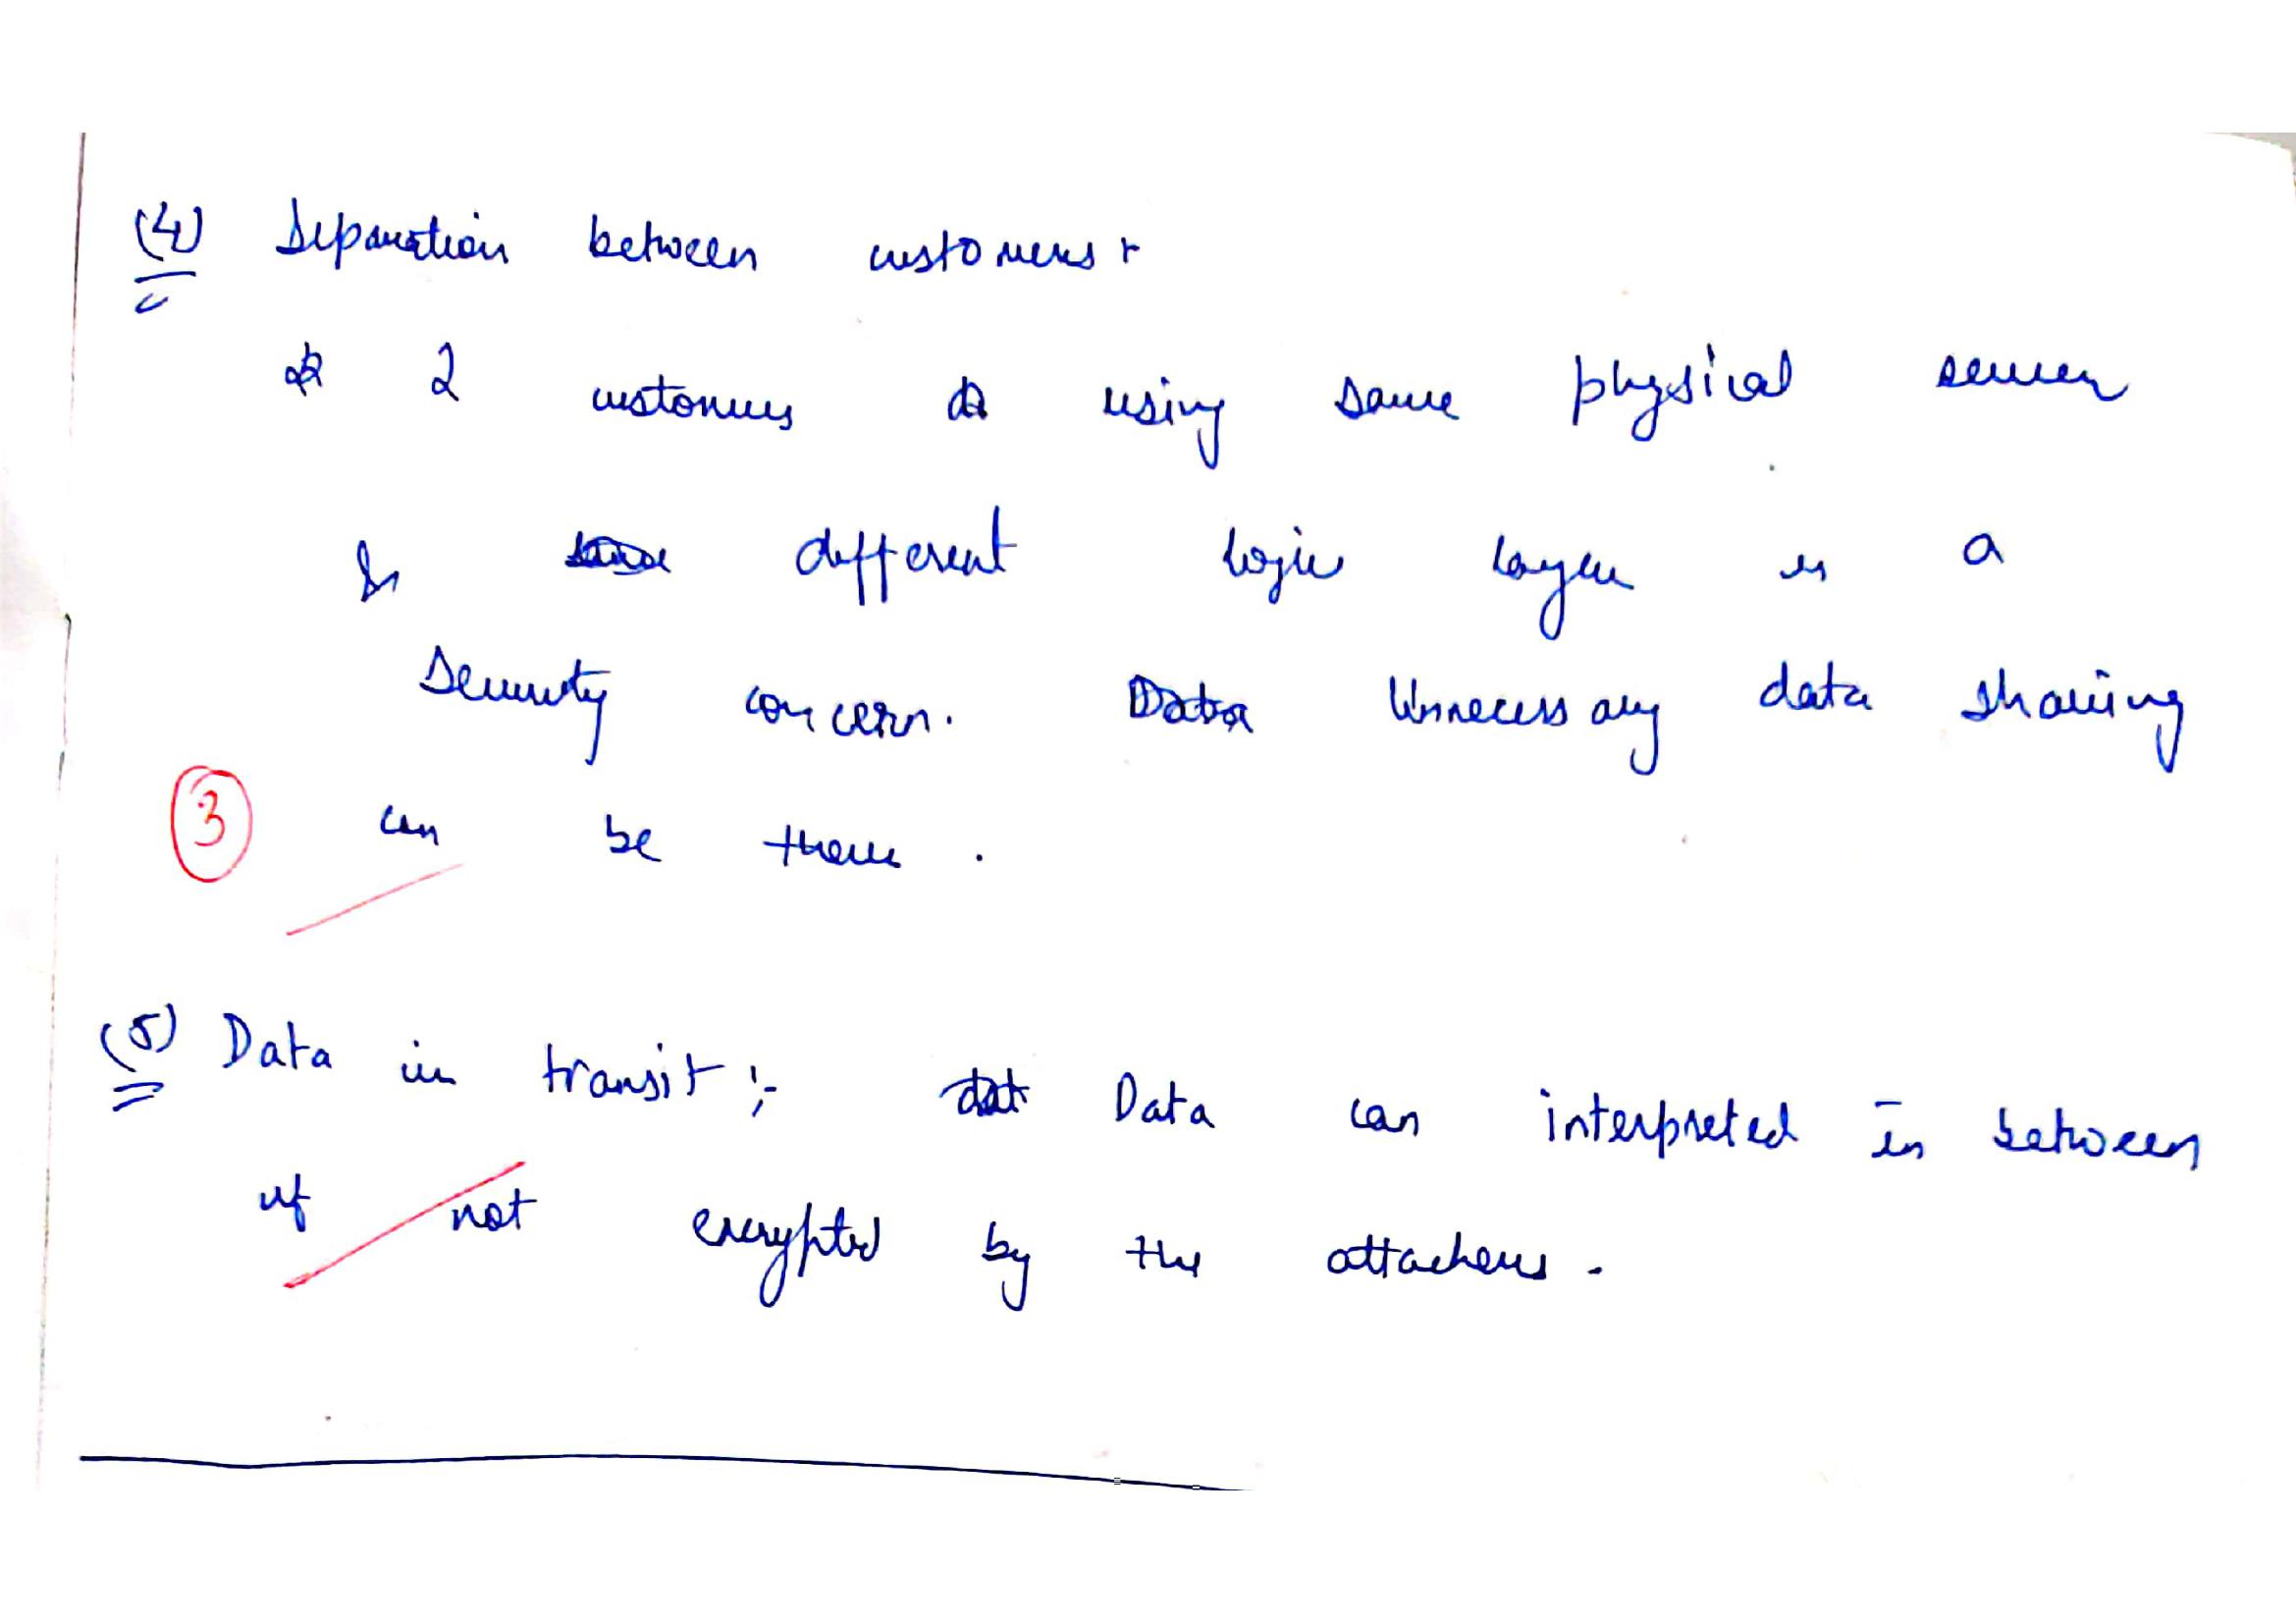 (4) Separation between customers :-
2 customers using same physical server
& different logic layer is a
security concern. Unnecessary data sharing
3 can be there .
(5) Data in transit :- Data can interpreted in between
if not encrypted by the attackers .